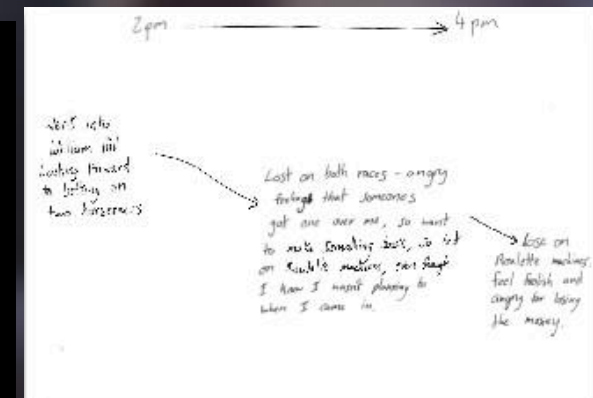 2pm 4pm
Went into
William Hill
looking forward
to betting on
two horseraces
Lost on both races - angry
feelings that someones
got one over me, so want
to make something back, so bet
on Roulette machines, even though
I know I wasn't planning to
when I came in
Lose on
Roulette machines,
feel foolish and
angry for losing
the money.